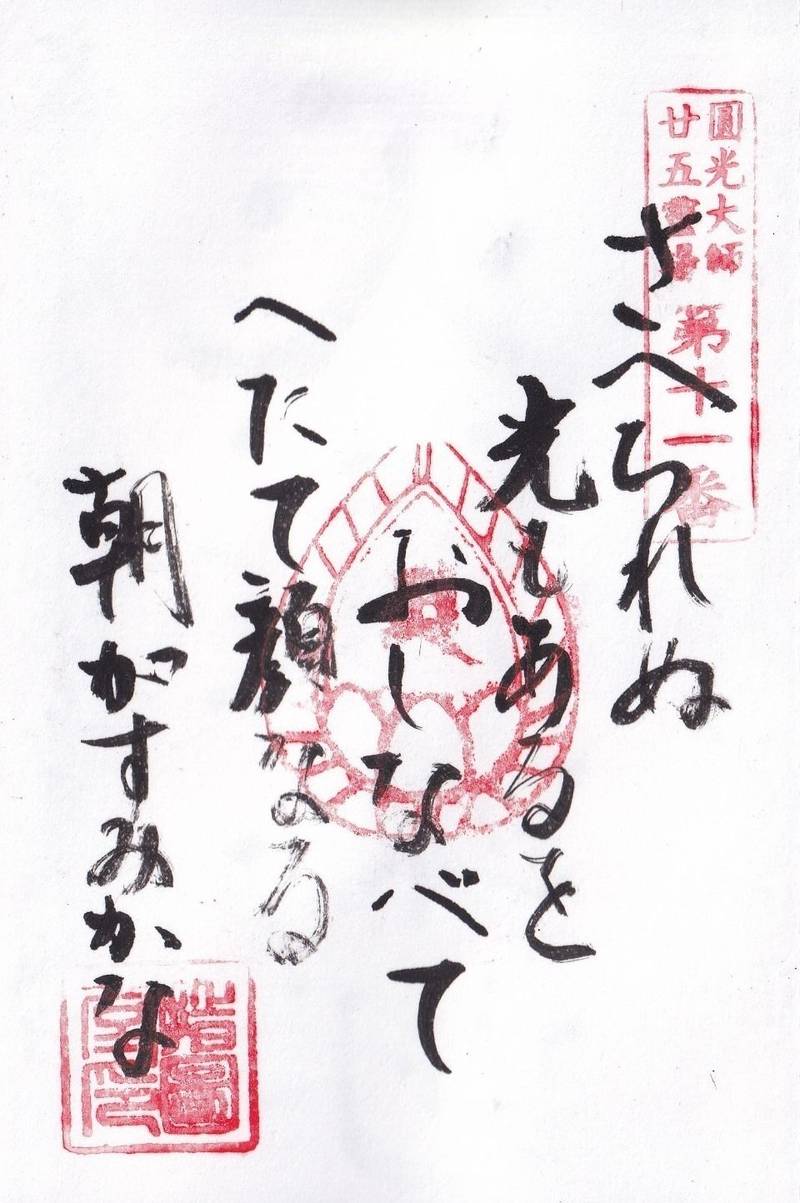 圓光大師
廿五霊場
第十一番
さへられぬ
光もあるを
おしなべて
へだて顔なる
朝がすみかな